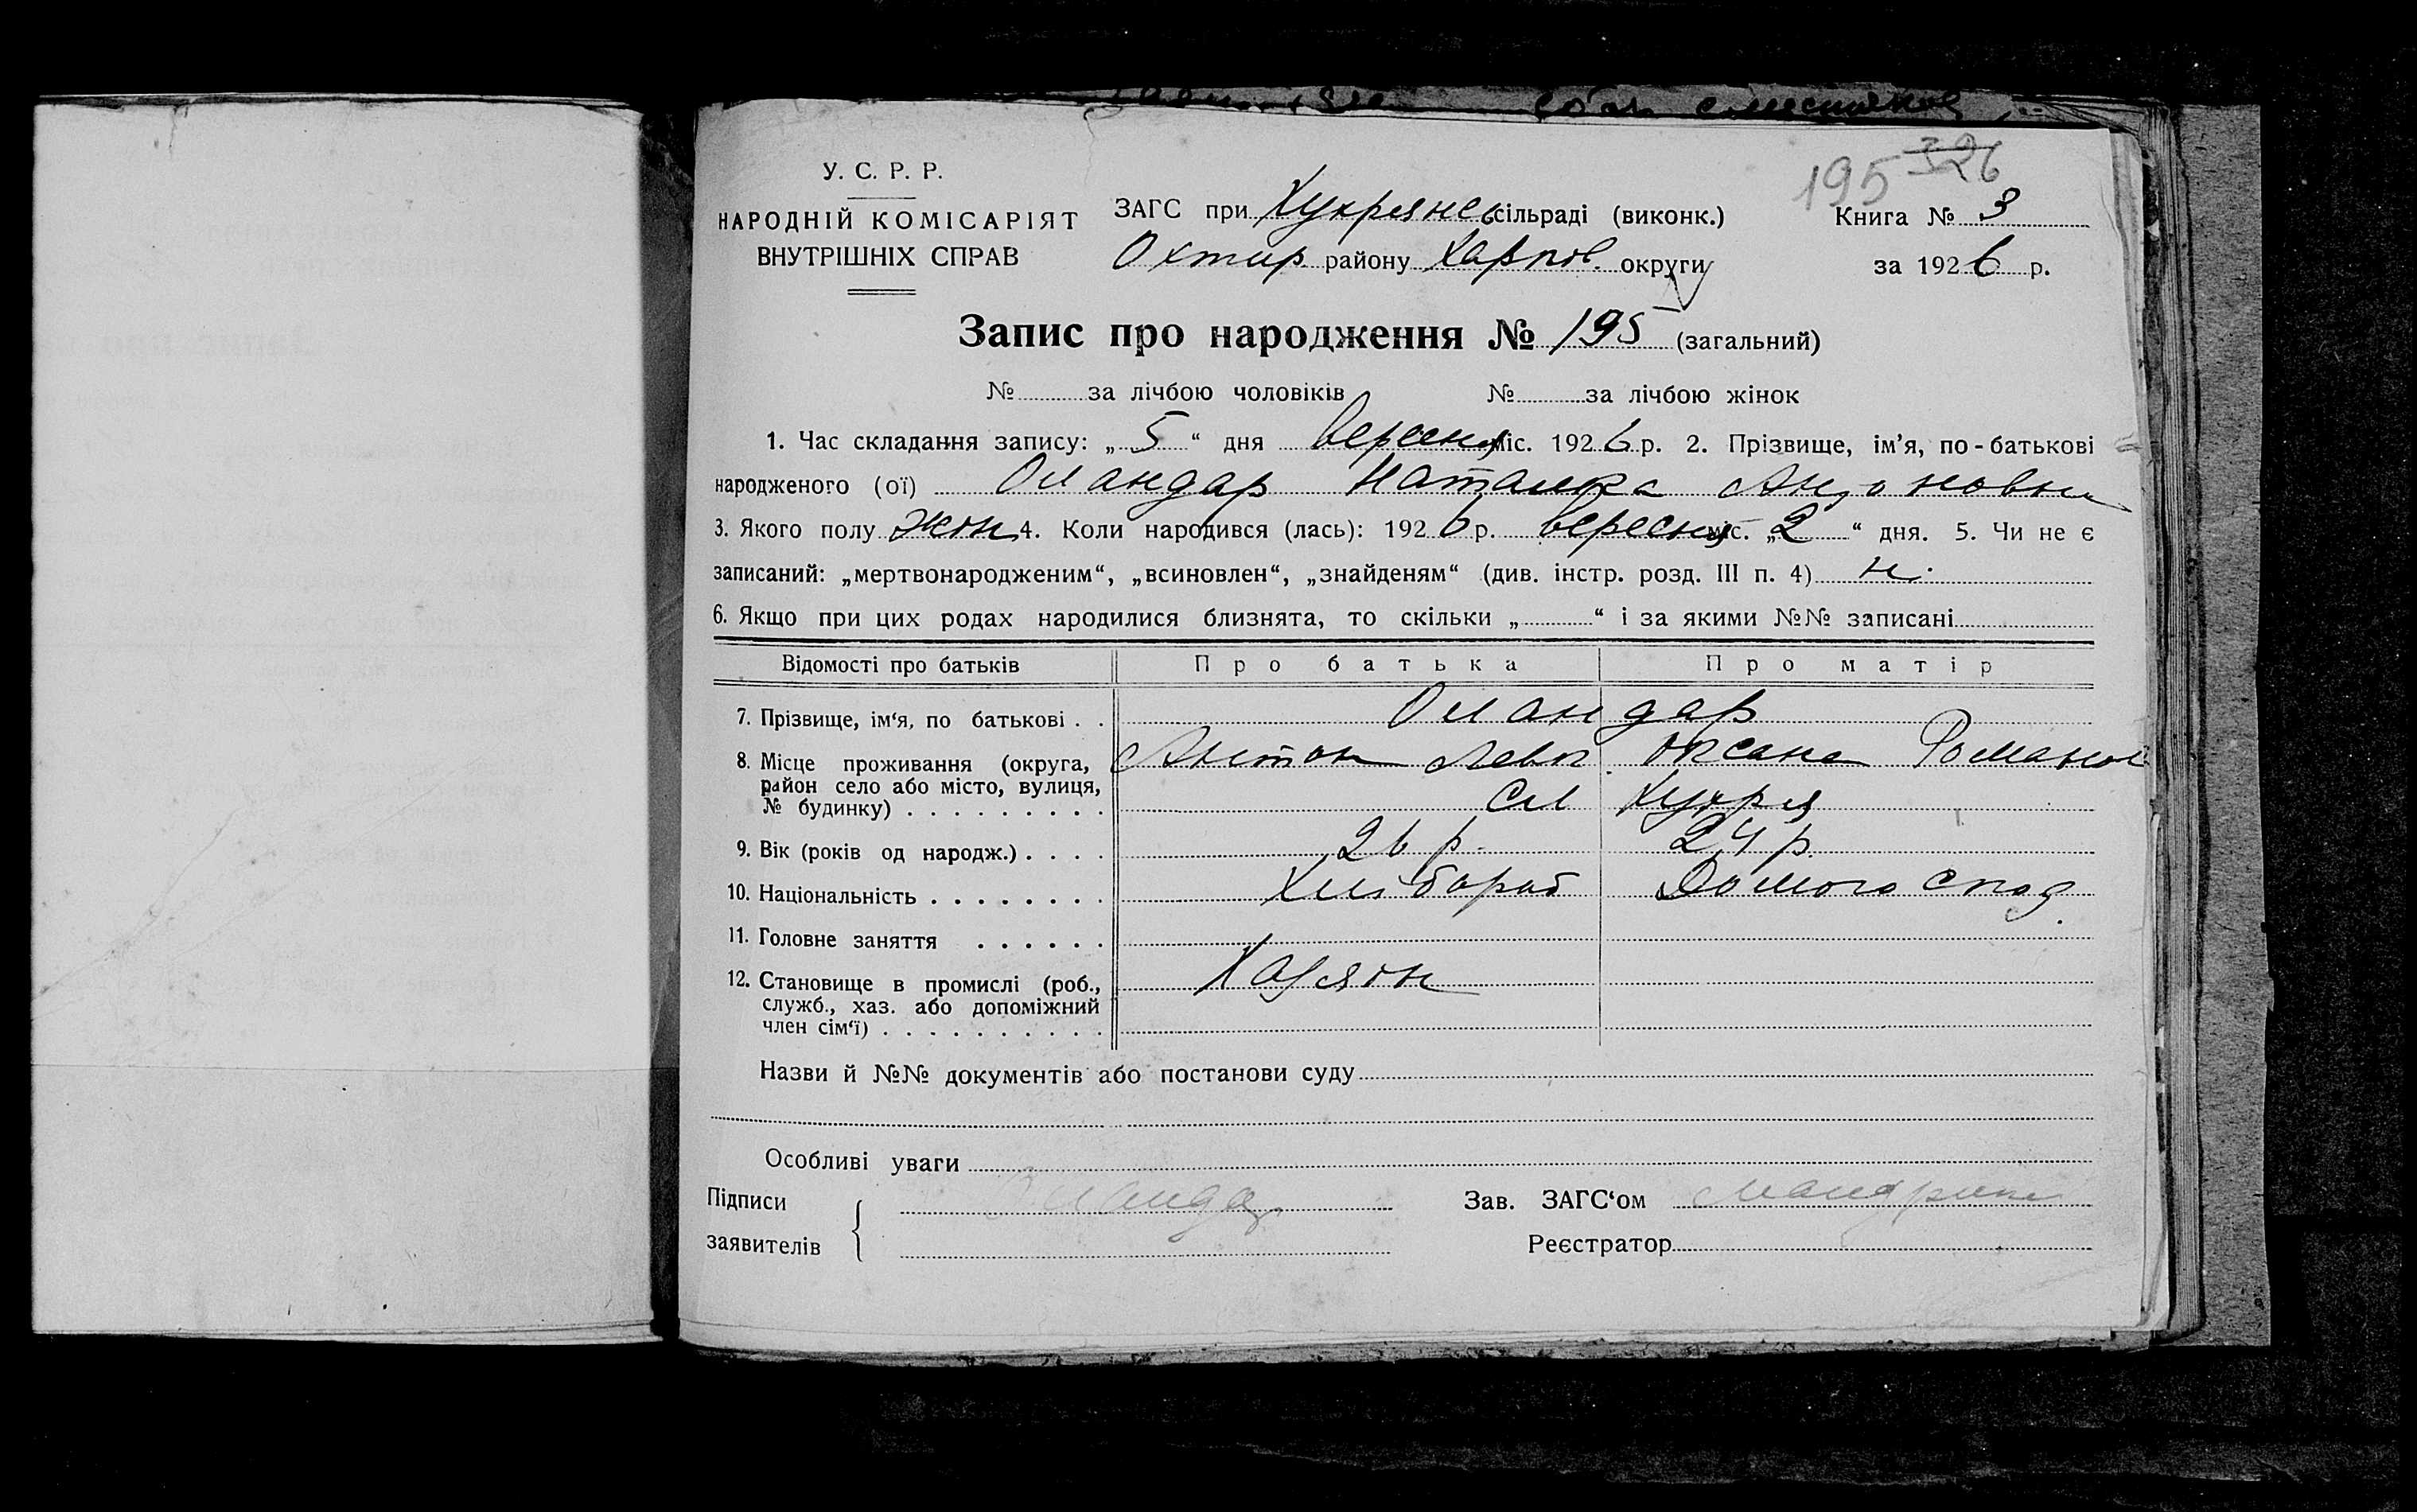 195 326
У. С. Р. Р.
НАРОДНІЙ КОМІСАРІЯТ
ВНУТРІШНІХ СПРАВ
ЗАГС при Хухрянсь сільраді (виконк.) Книга № 3
Охтир району Харков. округи за 1926 р.
Запис про народження № 195 (загальний)
№ за лічбою чоловіків № за лічбою жінок
1. Час складання запису: „ 5 “ дня вересня міс. 1926 р. 2. Прізвище, ім’я, по-батькові
народженого (ої) Оландар Наталка Антоновна
3. Якого полу жін 4. Коли народився (лась): 1926 р. вересня міс. „ 2 “ дня. 5. Чи не є
записаний: „мертвонародженим“, „всиновлен“, „знайденям“ (див. інстр. розд. III п. 4) н.
6. Якщо при цих родах народилися близнята, то скільки „ “ і за якими №№ записані
Відомості про батьків Про батька Про матір
7. Прізвище, ім‘я, по батькові . . Оландар
8. Місце проживання (округа, Антон Левк. Оксана Романов
район село або місто, вулиця,
№ будинку) . . . . . . . . . Сл Хухря
9. Вік (років од народж.) . . . . 26 р. 24 р.
10. Національність . . . . . . . . Хлібороб Домогоспод.
11. Головне заняття . . . . . .
12. Становище в промислі (роб., Хазяїн
служб., хаз. або допоміжний
член сім‘ї) . . . . . . . . . .
Назви й №№ документів або постанови суду
Особливі уваги
Підписи Оландар Зав. ЗАГС‘ом
заявителів Реєстратор